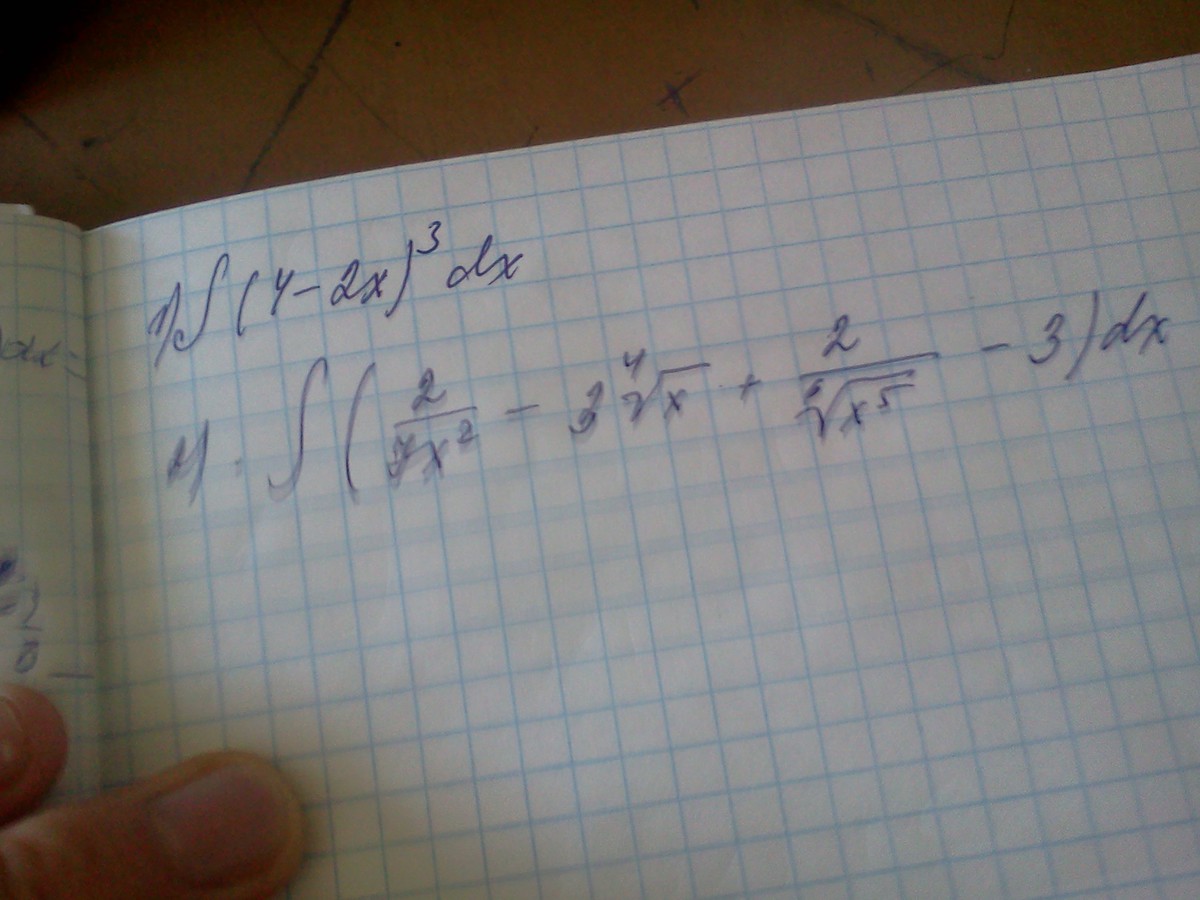 1) ∫ (4 - 2x)³ dx
2) ∫ ( 2/(7x²) - 3 ⁴√x + 2/√(x⁵) - 3 ) dx